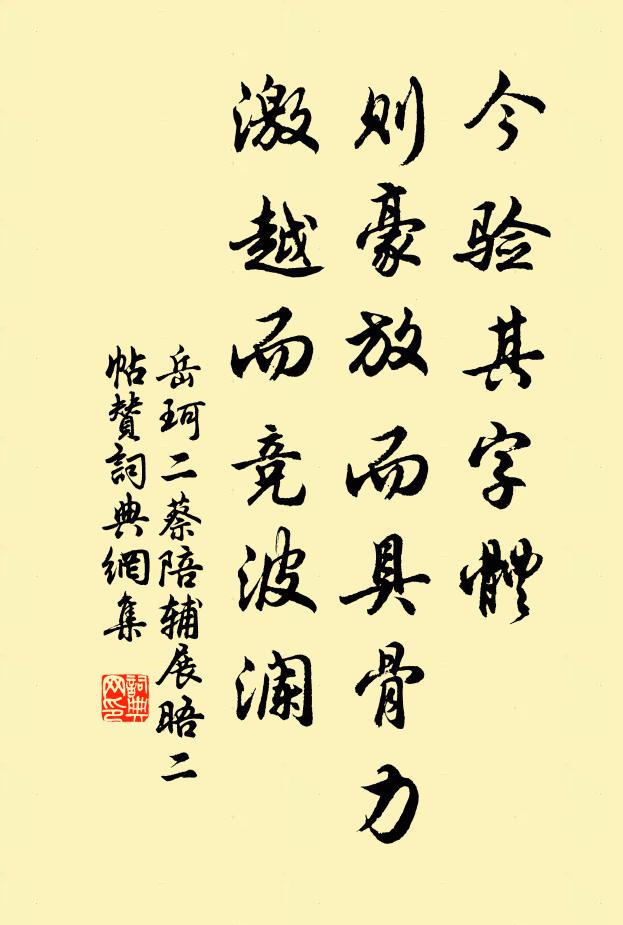 今验其字體
则豪放而具骨力
激越而竞波澜
岳珂二蔡陪辅展晤二
帖赞詞典網集
詞典
网印